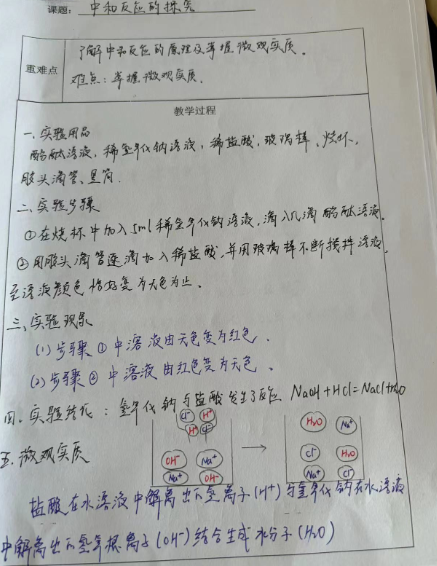 课题：中和反应的探究
重难点
了解中和反应的原理及掌握微观实质。
难点：掌握微观实质。
教学过程
一、实验用品
酚酞溶液，稀氢氧化钠溶液，稀盐酸，玻璃棒、烧杯、
胶头滴管、量筒.
二、实验步骤
①在烧杯中加入5ml稀氢氧化钠溶液，滴入几滴酚酞溶液.
②用胶头滴管逐滴加入稀盐酸，并用玻璃棒不断搅拌溶液，
至溶液颜色恰好变为无色为止.
三、实验现象
(1) 步骤①中溶液由无色变为红色.
(2) 步骤②中溶液由红色变为无色.
四、实验结论：氢氧化钠与盐酸发生了反应 NaOH+HCl=NaCl+H₂O
五、微观实质
Cl⁻ H⁺ H⁺ Cl⁻
OH⁻ Na⁺ Na⁺ OH⁻
→
H₂O Na⁺
Cl⁻ H₂O
Na⁺ Cl⁻
盐酸在水溶液中解离出的氢离子(H⁺)与氢氧化钠在水溶液
中解离出的氢氧根离子(OH⁻)结合生成水分子(H₂O)